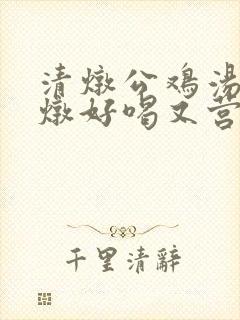 清燉公鸡湯
燉好喝又营
千里清辭